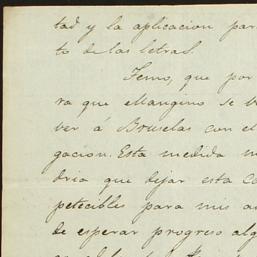 tad y la aplicacion par
to de las letras.
Temo, que por
ra que Mangino se h
ver á Bruselas con el
gacion. Esta medida m
dria que dejar esta Co
petecibles para mis a
de esperar progreso alg